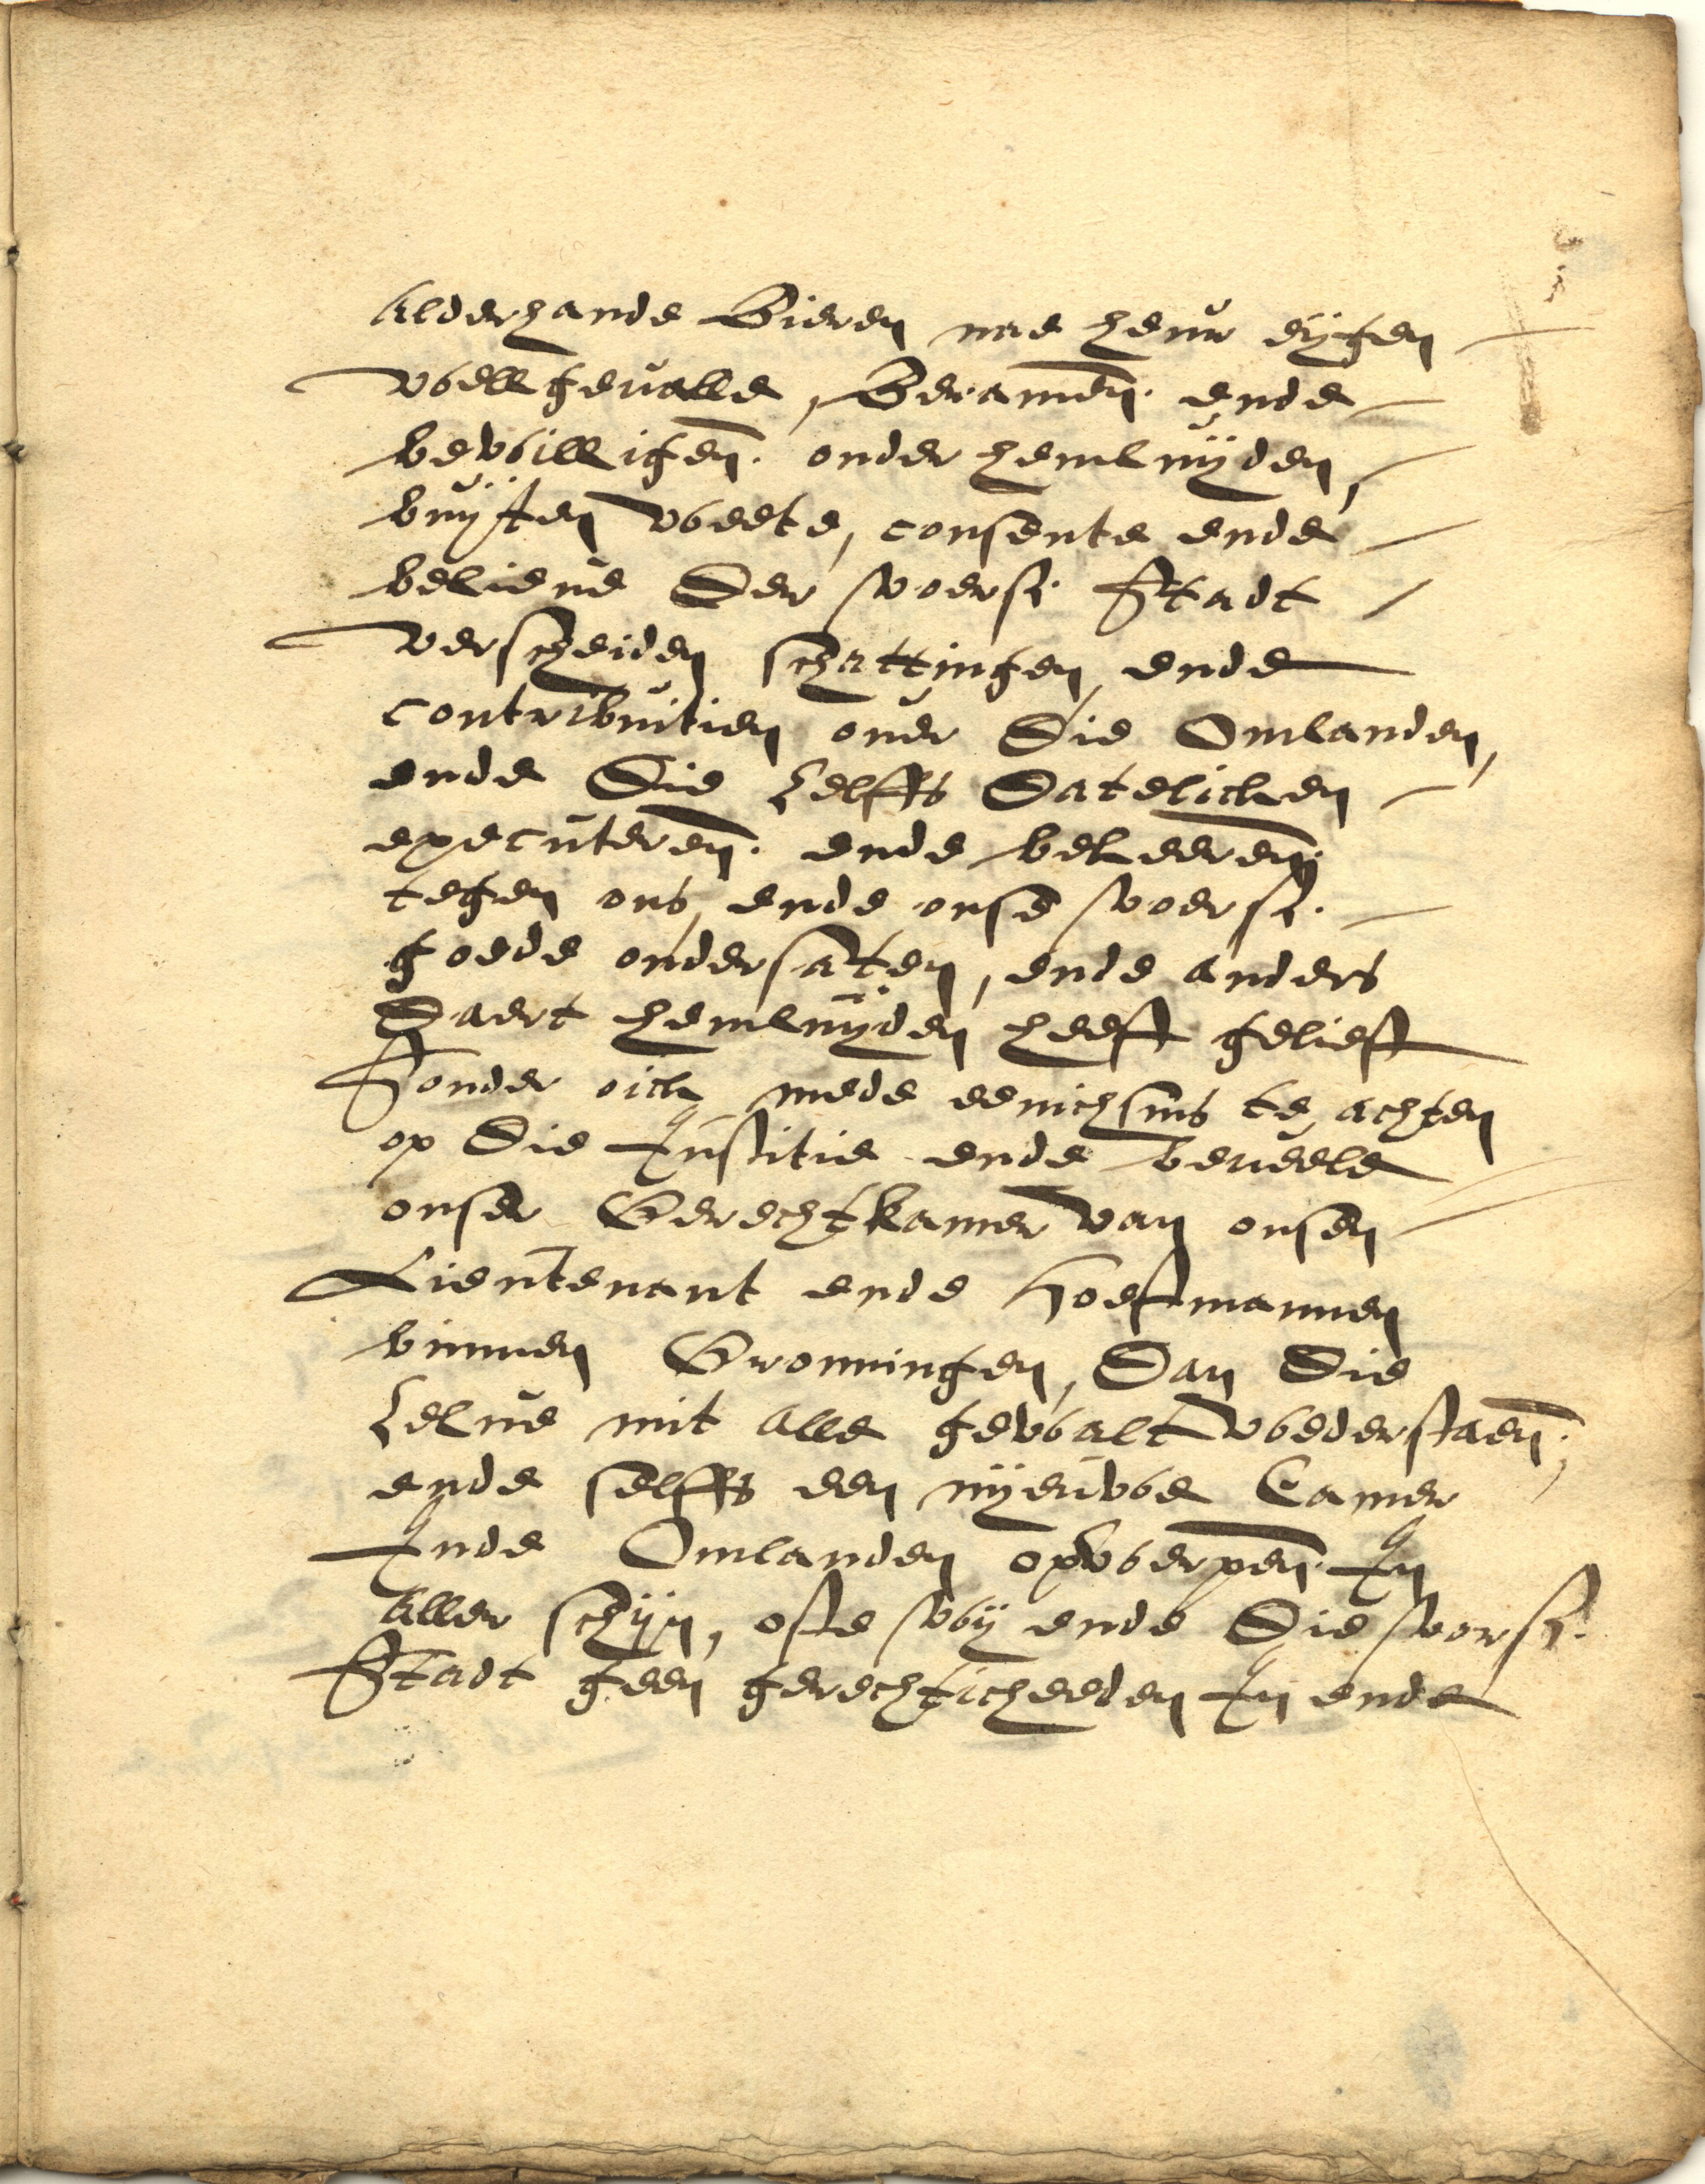 alderhande Bieren nae heur eijgen
welgevalle, Beramen ende
bewilligen onder hemluijden,
buijten weete, consente ende
belieue der voersz. Stadt
verscheiden schattingen ende
contributien ouer die Omlanden,
ende die zelffs datelicken
executeren ende bekeeren
tegen ons, ende onse voersz.
goede ondersaten, ende anders
daert hemluijden heeft gelieft
Sonder oick mede eenichsins te achten
op die Justitie ende beueele
onser Gerechtkamer van onsen
Lieutenant ende Hoeftmannen
binnen Gronningen, dan die
zelue mit alle gewalt wederstaen,
ende selffs een nijeuwe Camer
Inde Omlanden opwerpen In
aller schijn, ofte wij ende die voersz.
Stadt geen gerechticheeden In ende